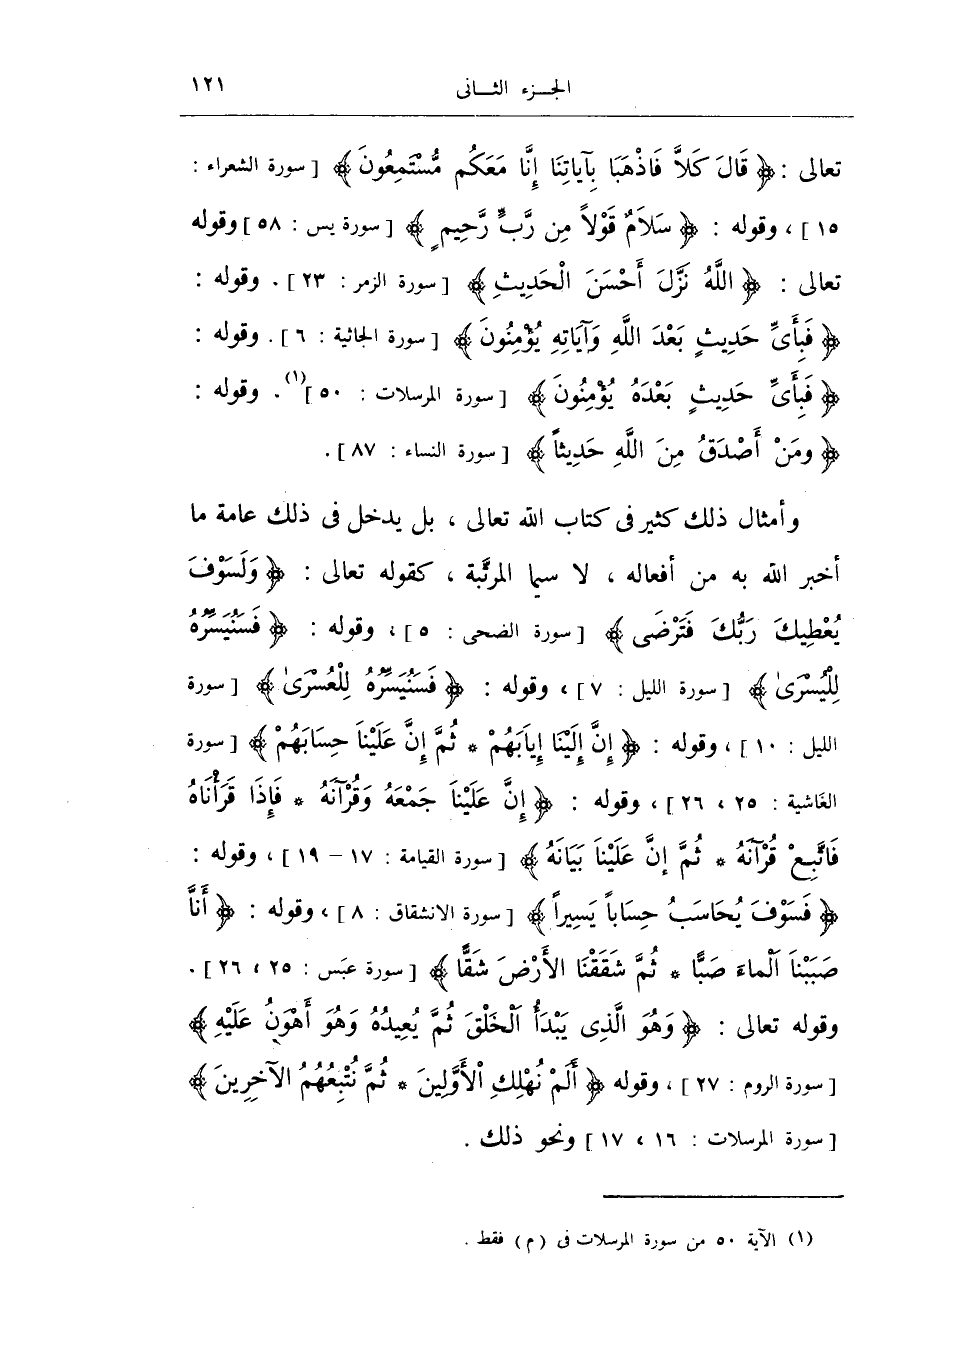 الجـزء الثـانى ١٢١
تعالى : ﴿ قَالَ كَلاَّ فَاذْهَبَا بِآيَاتِنَا إِنَّا مَعَكُم مُّسْتَمِعُونَ ﴾ [ سورة الشعراء :
١٥ ] ، وقوله : ﴿ سَلاَمٌ قَوْلاً مِن رَّبٍّ رَّحِيمٍ ﴾ [ سورة يس : ٥٨ ] وقوله
تعالى : ﴿ اللَّهُ نَزَّلَ أَحْسَنَ الْحَدِيثِ ﴾ [ سورة الزمر : ٢٣ ] . وقوله :
﴿ فَبِأَىِّ حَدِيثٍ بَعْدَ اللَّهِ وَآيَاتِهِ يُؤْمِنُونَ ﴾ [ سورة الجاثية : ٦ ] . وقوله :
﴿ فَبِأَىِّ حَدِيثٍ بَعْدَهُ يُؤْمِنُونَ ﴾ [ سورة المرسلات : ٥٠ ](١) . وقوله :
﴿ ومَنْ أَصْدَقُ مِنَ اللَّهِ حَدِيثاً ﴾ [ سورة النساء : ٨٧ ] .
وأمثال ذلك كثير فى كتاب الله تعالى ، بل يدخل فى ذلك عامة ما
أخبر الله به من أفعاله ، لا سيما المرتَّبة ، كقوله تعالى : ﴿ وَلَسَوْفَ
يُعْطِيكَ رَبُّكَ فَتَرْضَى ﴾ [ سورة الضحى : ٥ ] ، وقوله : ﴿ فَسَنُيَسِّرُهُ
لِلْيُسْرَىٰ ﴾ [ سورة الليل : ٧ ] ، وقوله : ﴿ فَسَنُيَسِّرُهُ لِلْعُسْرَىٰ ﴾ [ سورة
الليل : ١٠ ] ، وقوله : ﴿ إِنَّ إِلَيْنَا إِيابَهُمْ * ثُمَّ إِنَّ عَلَيْنَا حِسَابَهُمْ ﴾ [ سورة
الغاشية : ٢٥ ، ٢٦ ] ، وقوله : ﴿ إِنَّ عَلَيْنَا جَمْعَهُ وَقُرْآنَهُ * فَإِذَا قَرَأْنَاهُ
فَاتَّبِعْ قُرْآنَهُ * ثُمَّ إنَّ عَلَيْنَا بَيَانَهُ ﴾ [ سورة القيامة : ١٧ – ١٩ ] ، وقوله :
﴿ فَسَوْفَ يُحَاسَبُ حِسَاباً يَسِيراً ﴾ [ سورة الانشقاق : ٨ ] ، وقوله : ﴿ أَنَّا
صَبَبْنَا الْمَاءَ صَبًّا * ثُمَّ شَقَقْنَا الأَرْضَ شَقًّا ﴾ [ سورة عبَس : ٢٥ ، ٢٦ ] .
وقوله تعالى : ﴿ وَهُوَ الَّذِى يَبْدَأُ الْخَلْقَ ثُمَّ يُعِيدُهُ وَهُوَ أَهْوَنُ عَلَيْهِ ﴾
[ سورة الروم : ٢٧ ] ، وقوله ﴿ أَلَمْ نُهْلِكِ الْأَوَّلِينَ * ثُمَّ نُتْبِعُهُمُ الآخِرِينَ ﴾
[ سورة المرسلات : ١٦ ، ١٧ ] ونحو ذلك .
(١) الآية ٥٠ من سورة المرسلات فى ( م ) فقط .